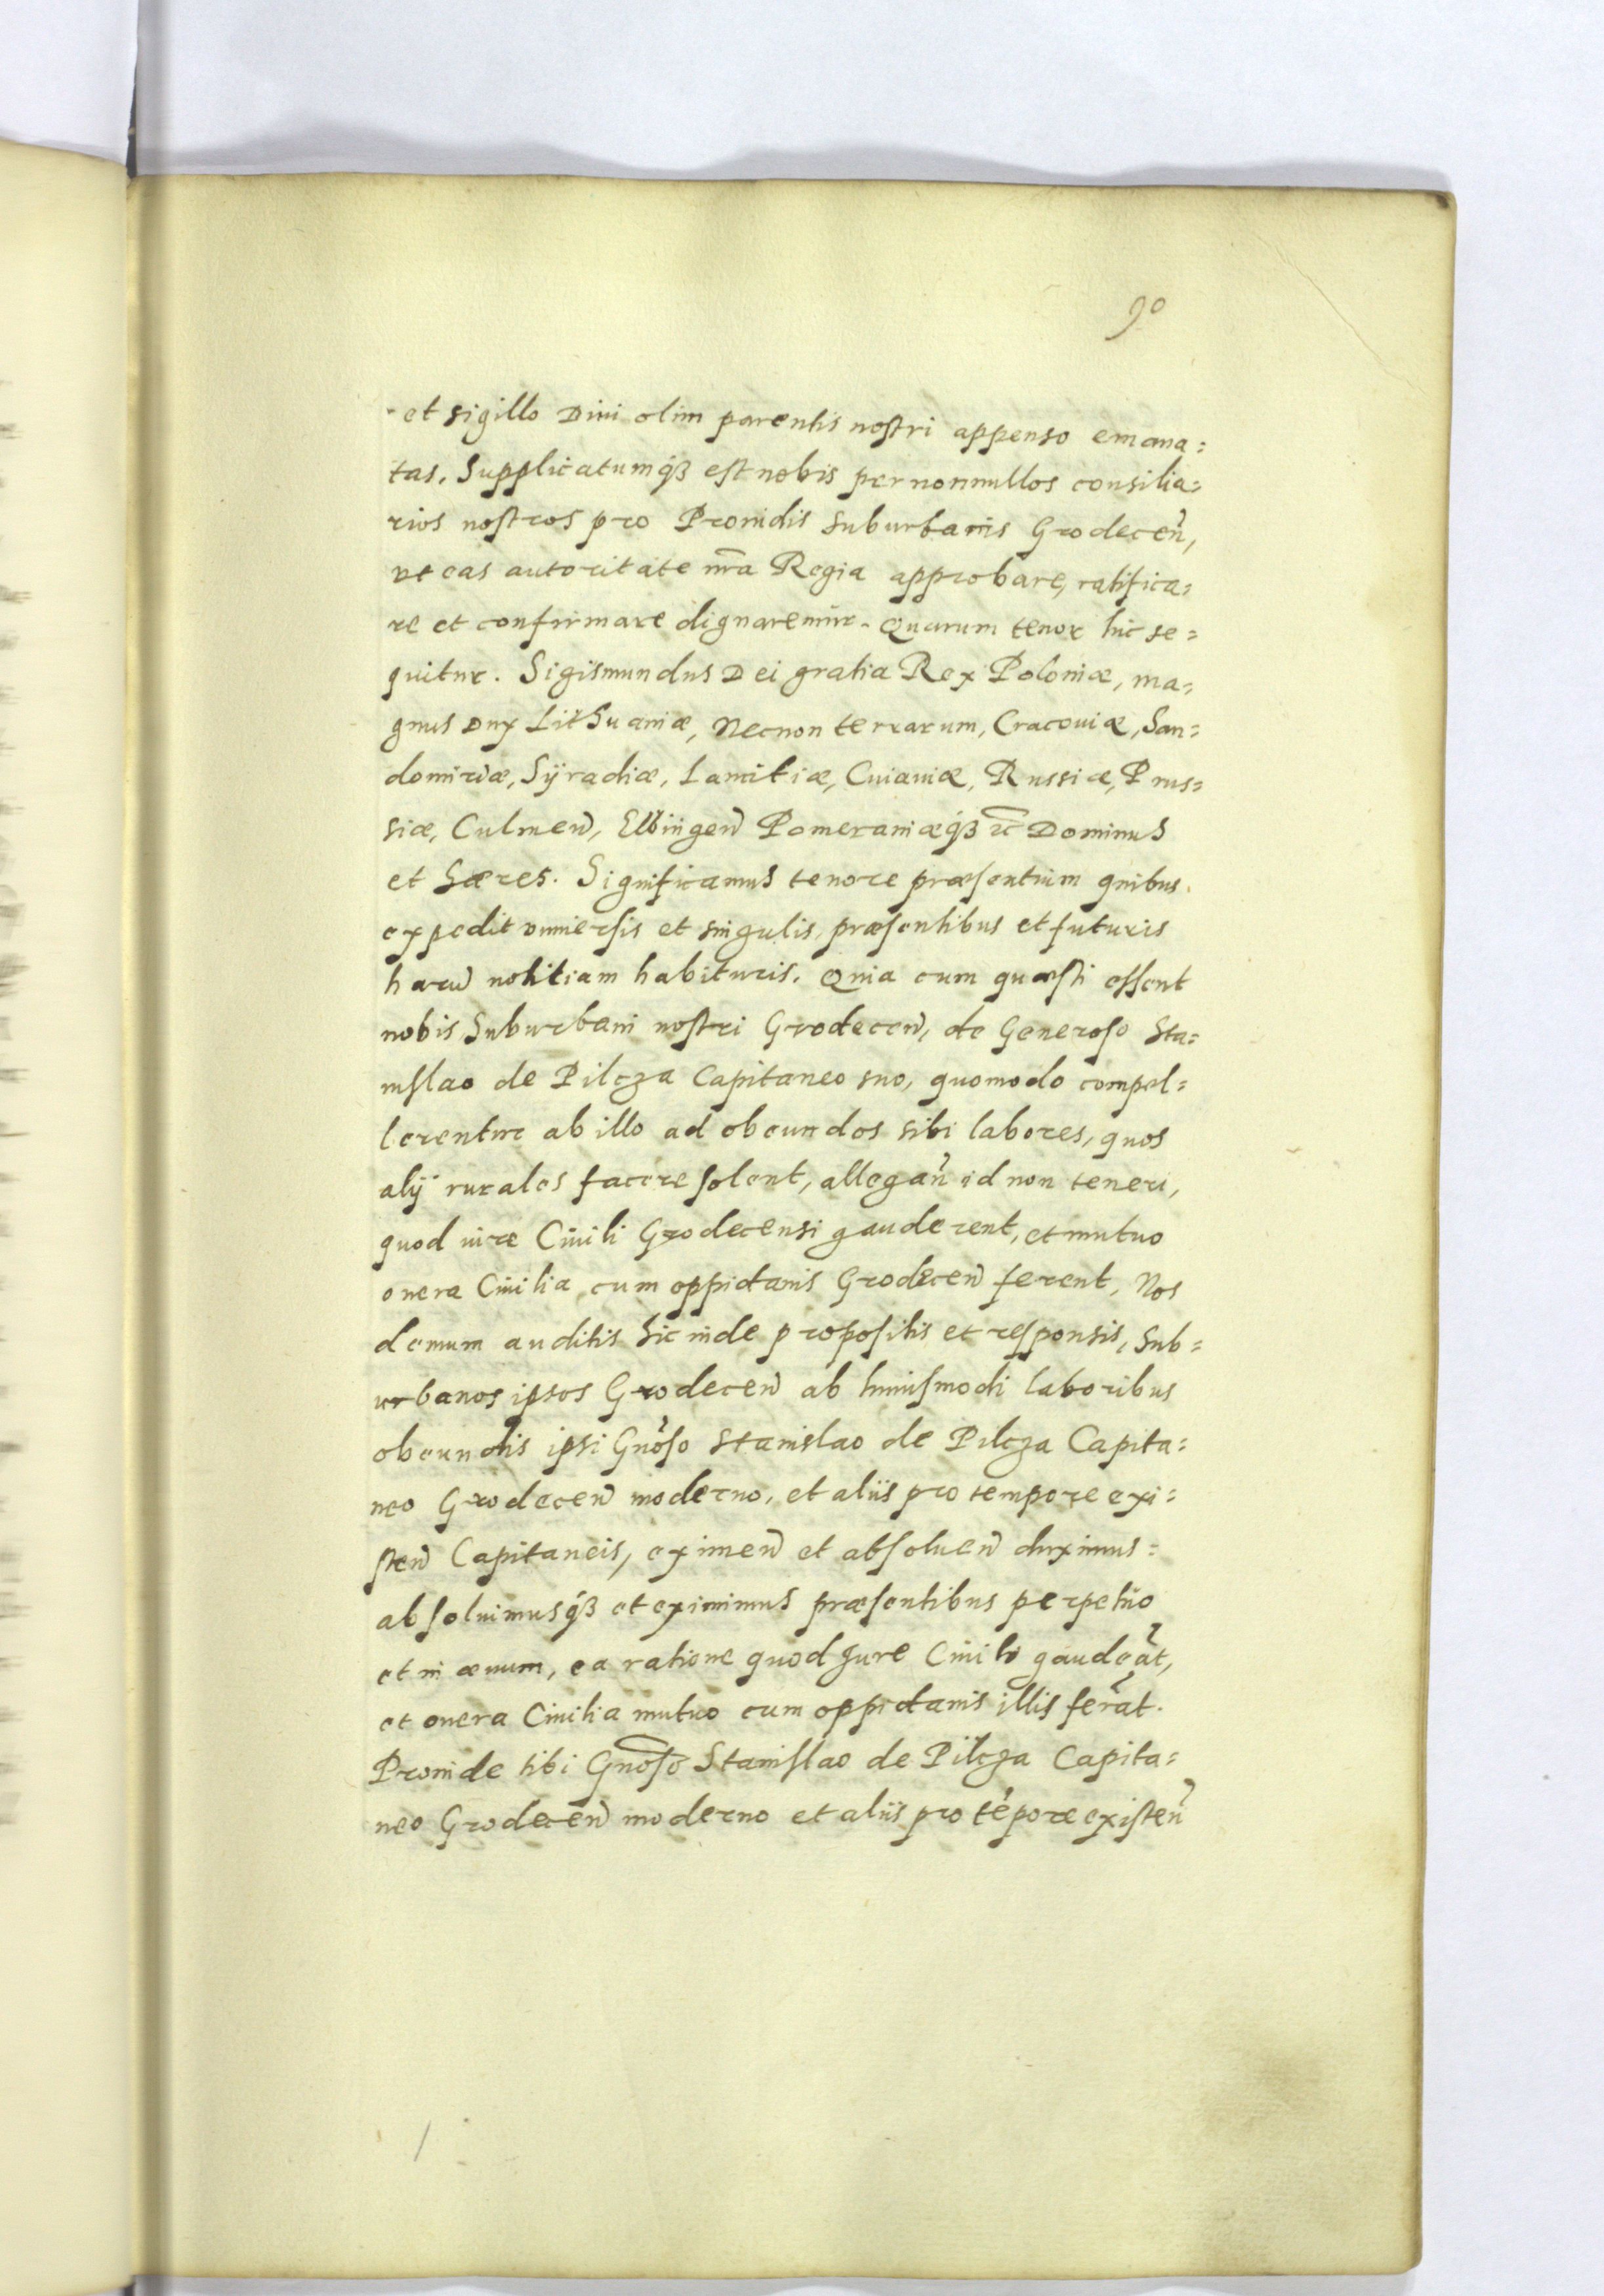 90
et sigillo Divi olim parentis nostri appenso emana=
tas. Supplicatumq₃ est nobis per nonnullos consilia=
rios nostros pro Providis Suburbanis Grodeceñ,
vt eas autoritate nr̃a Regia approbare, ratifica=
re et confirmare dignaremur. Quarum tenor hic se=
quitur. Sigismundus Dei gratia Rex Poloniæ, ma=
gnus Dux Lithuaniæ, Necnon terrarum, Cracoviæ, San=
domiriæ, Syradiæ, Lancitiæ, Cuiaviæ, Russiæ, Prus=
siæ, Culmeñ, Elbingeñ Pomeraniæq₃ ꝛc̃ Dominus
et Hæres. Significamus tenore præsentium quibus
expedit vniversis et singulis, præsentibus et futuris
harũ notitiam habituris. Quia cum quæsti essent
nobis Suburbani nostri Grodeceñ, de Generoso Sta=
nislao de Pilcza Capitaneo suo, quomodo compel=
lerentur ab illo ad obeundos sibi labores, quos
alÿ rurales facere solent, allegañ id non teneri,
quod iure Civili Grodecensi gauderent, et mutuo
onera Civilia cum oppidanis Grodeceñ ferent, Nos
demum auditis hic inde propositis et responsis, Sub=
urbanos ipsos Grodeceñ ab huiusmodi laboribus
obeundis ipsi Gnõso Stanislao de Pilcza Capita=
neo Grodeceñ moderno, et aliis pro tempore exi=
steñ Capitaneis, eximeñ et absolueñ duximus=
absoluimusq₃ et eximimus præsentibus perpetuo
et in ævum, ea ratione quod Jure Civili gaudeãt,
et onera Civilia mutuo cum oppidanis illis ferãt.
Proinde tibi Gnõso Stanislao de Pilcza Capita=
neo Grodeceñ moderno et aliis pro tẽpore existeñ